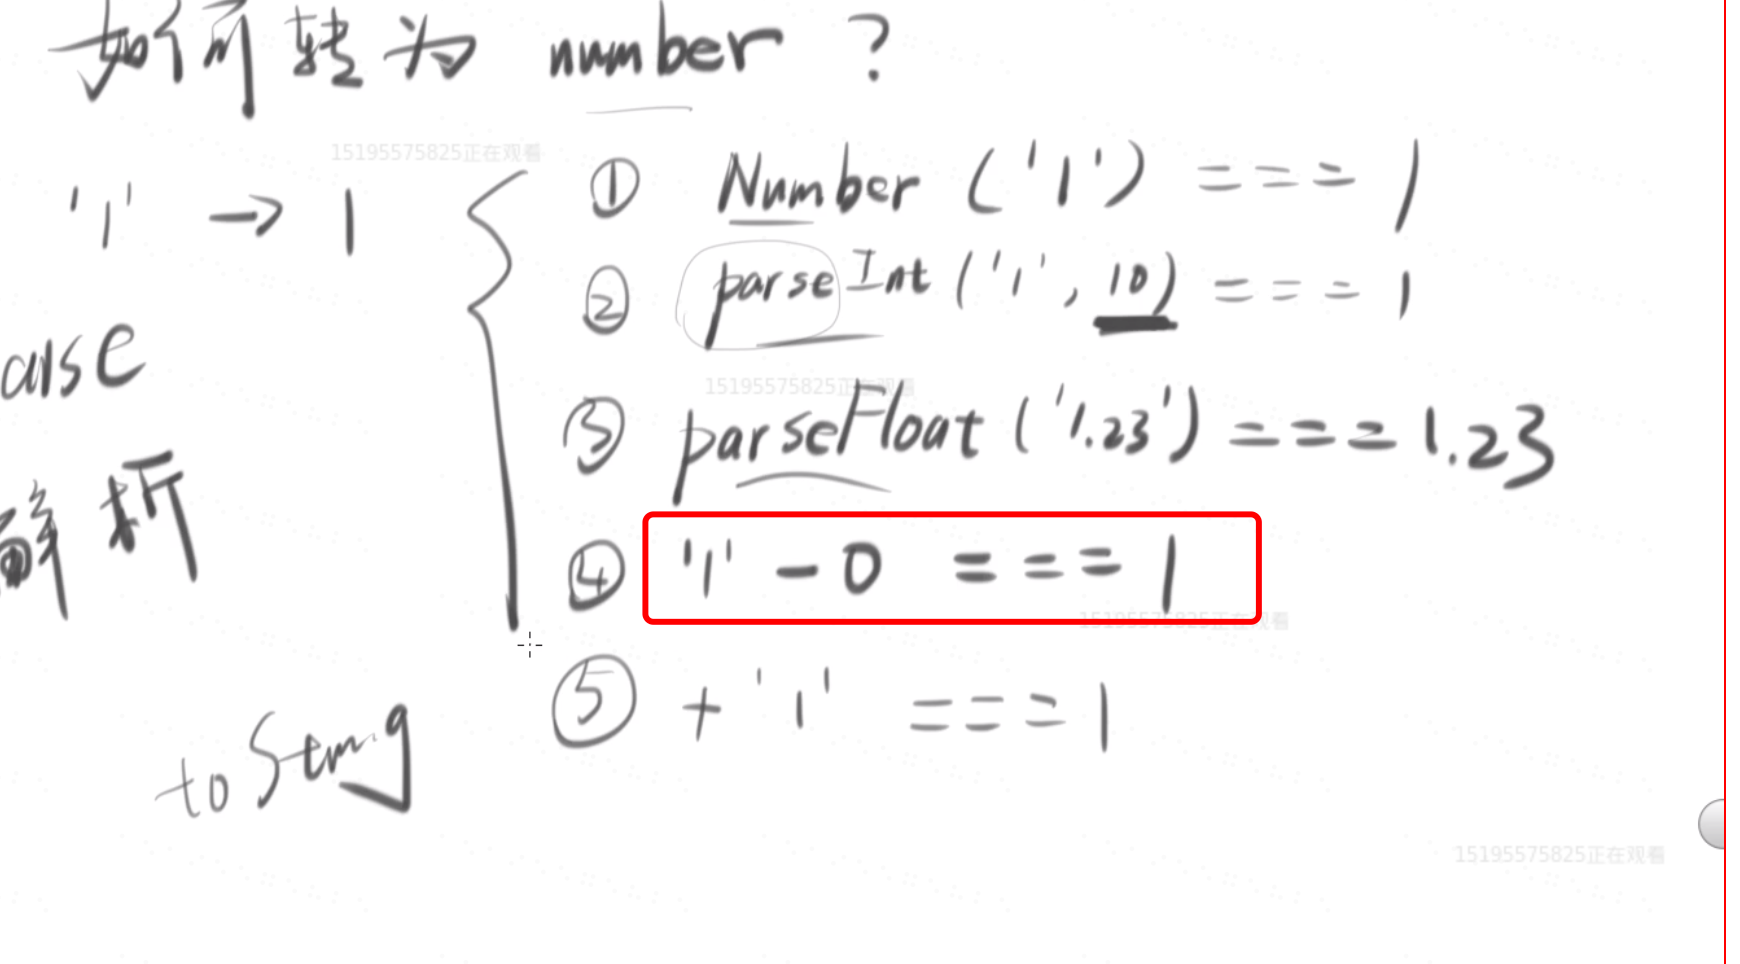 如何转为 number ?
15195575825正在观看
'1' → 1
① Number ('1') === 1
② parseInt ('1', 10) === 1
15195575825正在观看
parse
③ parseFloat ('1.23') === 1.23
解析
④ '1' - 0 === 1
15195575825正在观看
⑤ + '1' === 1
toString
15195575825正在观看